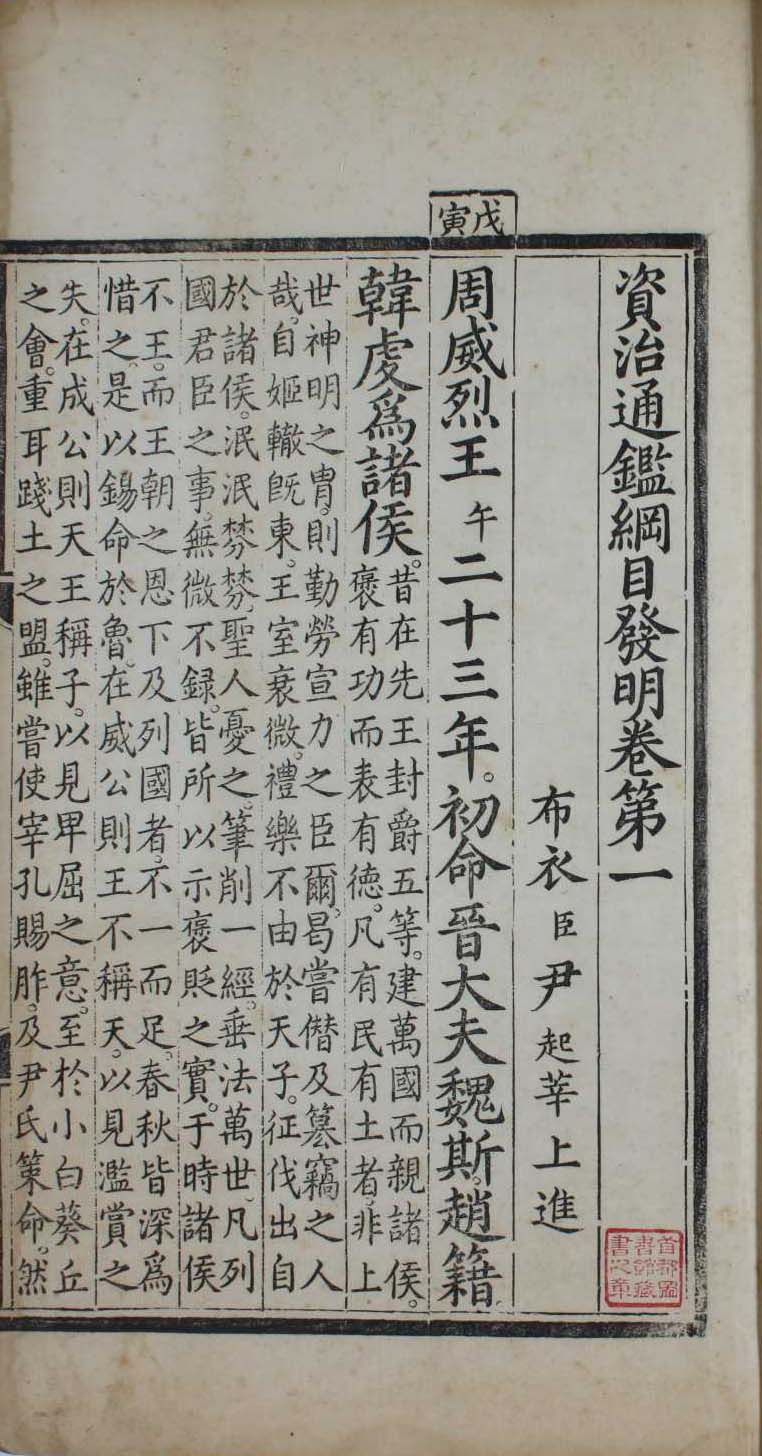 資治通鑑綱目發明卷第一
布衣臣尹起莘上進
戊寅
周威烈王午二十三年。初命晉大夫魏斯。趙籍。
韓虔爲諸侯。
昔在先王封爵五等。建萬國而親諸侯。
褒有功而表有德。凡有民有土者。非上
世神明之胄。則勤勞宣力之臣爾。曷嘗僭及篡竊之人
哉。自姬轍旣東。王室衰微。禮樂不由於天子。征伐出自
於諸侯。泯泯棼棼。聖人憂之。筆削一經。垂法萬世。凡列
國君臣之事。無微不録。皆所以示褒貶之實。于時諸侯
不王。而王朝之恩下及列國者。不一而足。春秋皆深爲
惜之。是以錫命於魯。在威公則王不稱天。以見濫賞之
失。在成公則天王稱子。以見卑屈之意。至於小白葵丘
之會。重耳踐土之盟。雖嘗使宰孔賜胙。及尹氏策命。然
首都圖書館藏書之章